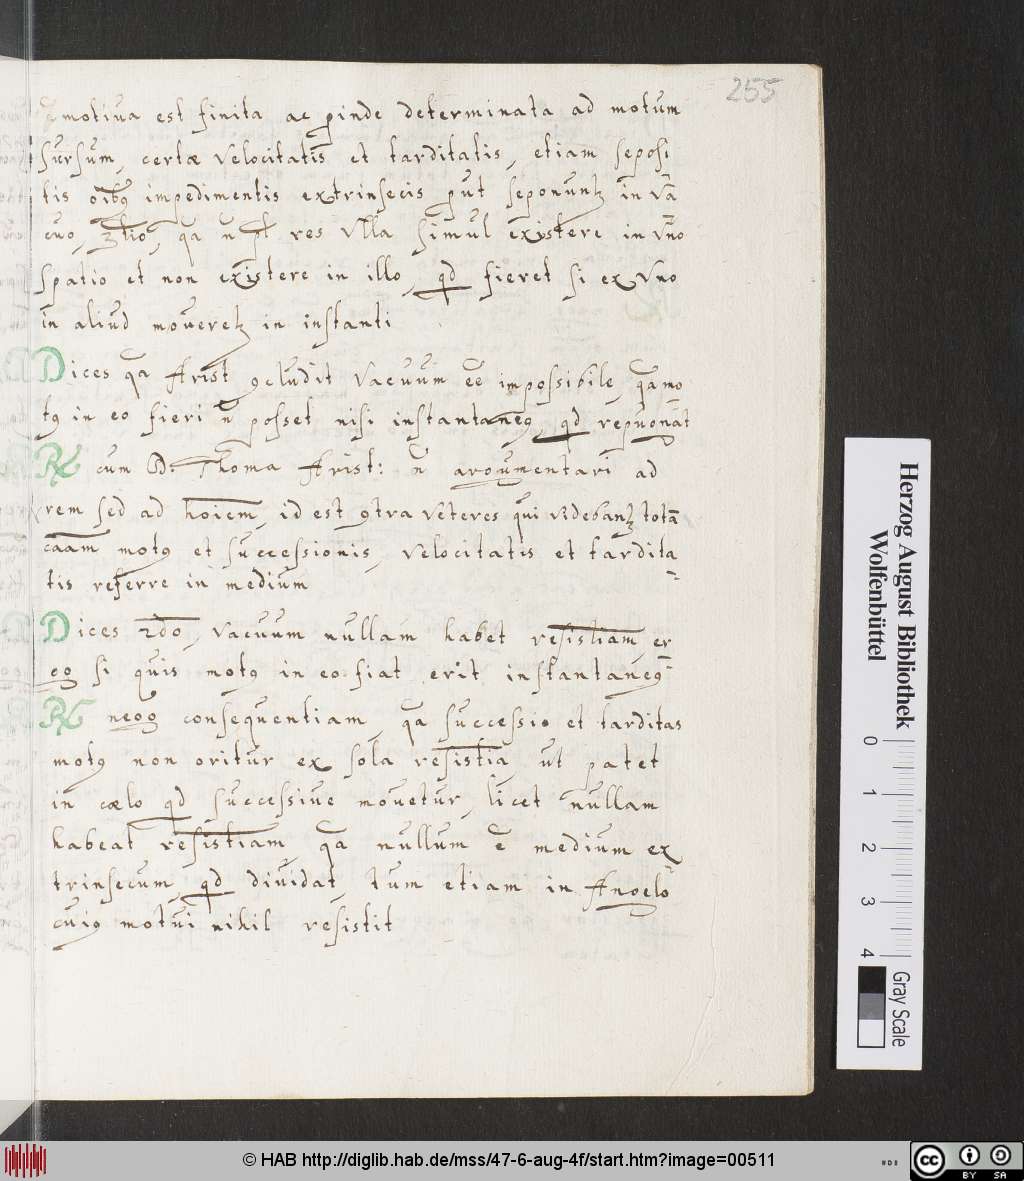 255
motiva est finita ac ꝑinde determinata ad motum
sursum, certæ velocitatis et tarditatis, etiam seposi
tis oībꝫ impedimentis extrinsecis ꝓut seponuntꝛ in va
cuo, 3tio, qa n̄ pt res vlla simul existere in vno
spatio et non existere in illo, qd fieret si ex vno
in aliud moveretꝛ in instanti
Dices qa Arist ꝯcludit vacuum eē impossibile, qa mo
tꝰ in eo fieri n̄ posset nisi instantaneꝰ, qd repugnat
℟ cum D: Thoma Arist: n̄ argumentari ad
rem sed ad hoīem, id est ꝯtra veteres qui videbantꝛ totā
caām motꝰ et successionis, velocitatis et tardita
tis referre in medium
Dices 2do, vacuum nullam habet resistiam, er
go si quis motꝰ in eo fiat erit instantaneꝰ
℟ nego consequentiam, qa successio et tarditas
motꝰ non oritur ex sola resistia, ut patet
in cælo qd successive movetur, licet nullam
habeat resistiam, qa nullum ē medium ex
trinsecum, qd dividat, tum etiam in Angelo
cuiꝰ motui nihil resistit
Herzog August Bibliothek
Wolfenbüttel
0 1 2 3 4
Gray Scale
© HAB http://diglib.hab.de/mss/47-6-aug-4f/start.htm?image=00511
cc BY SA